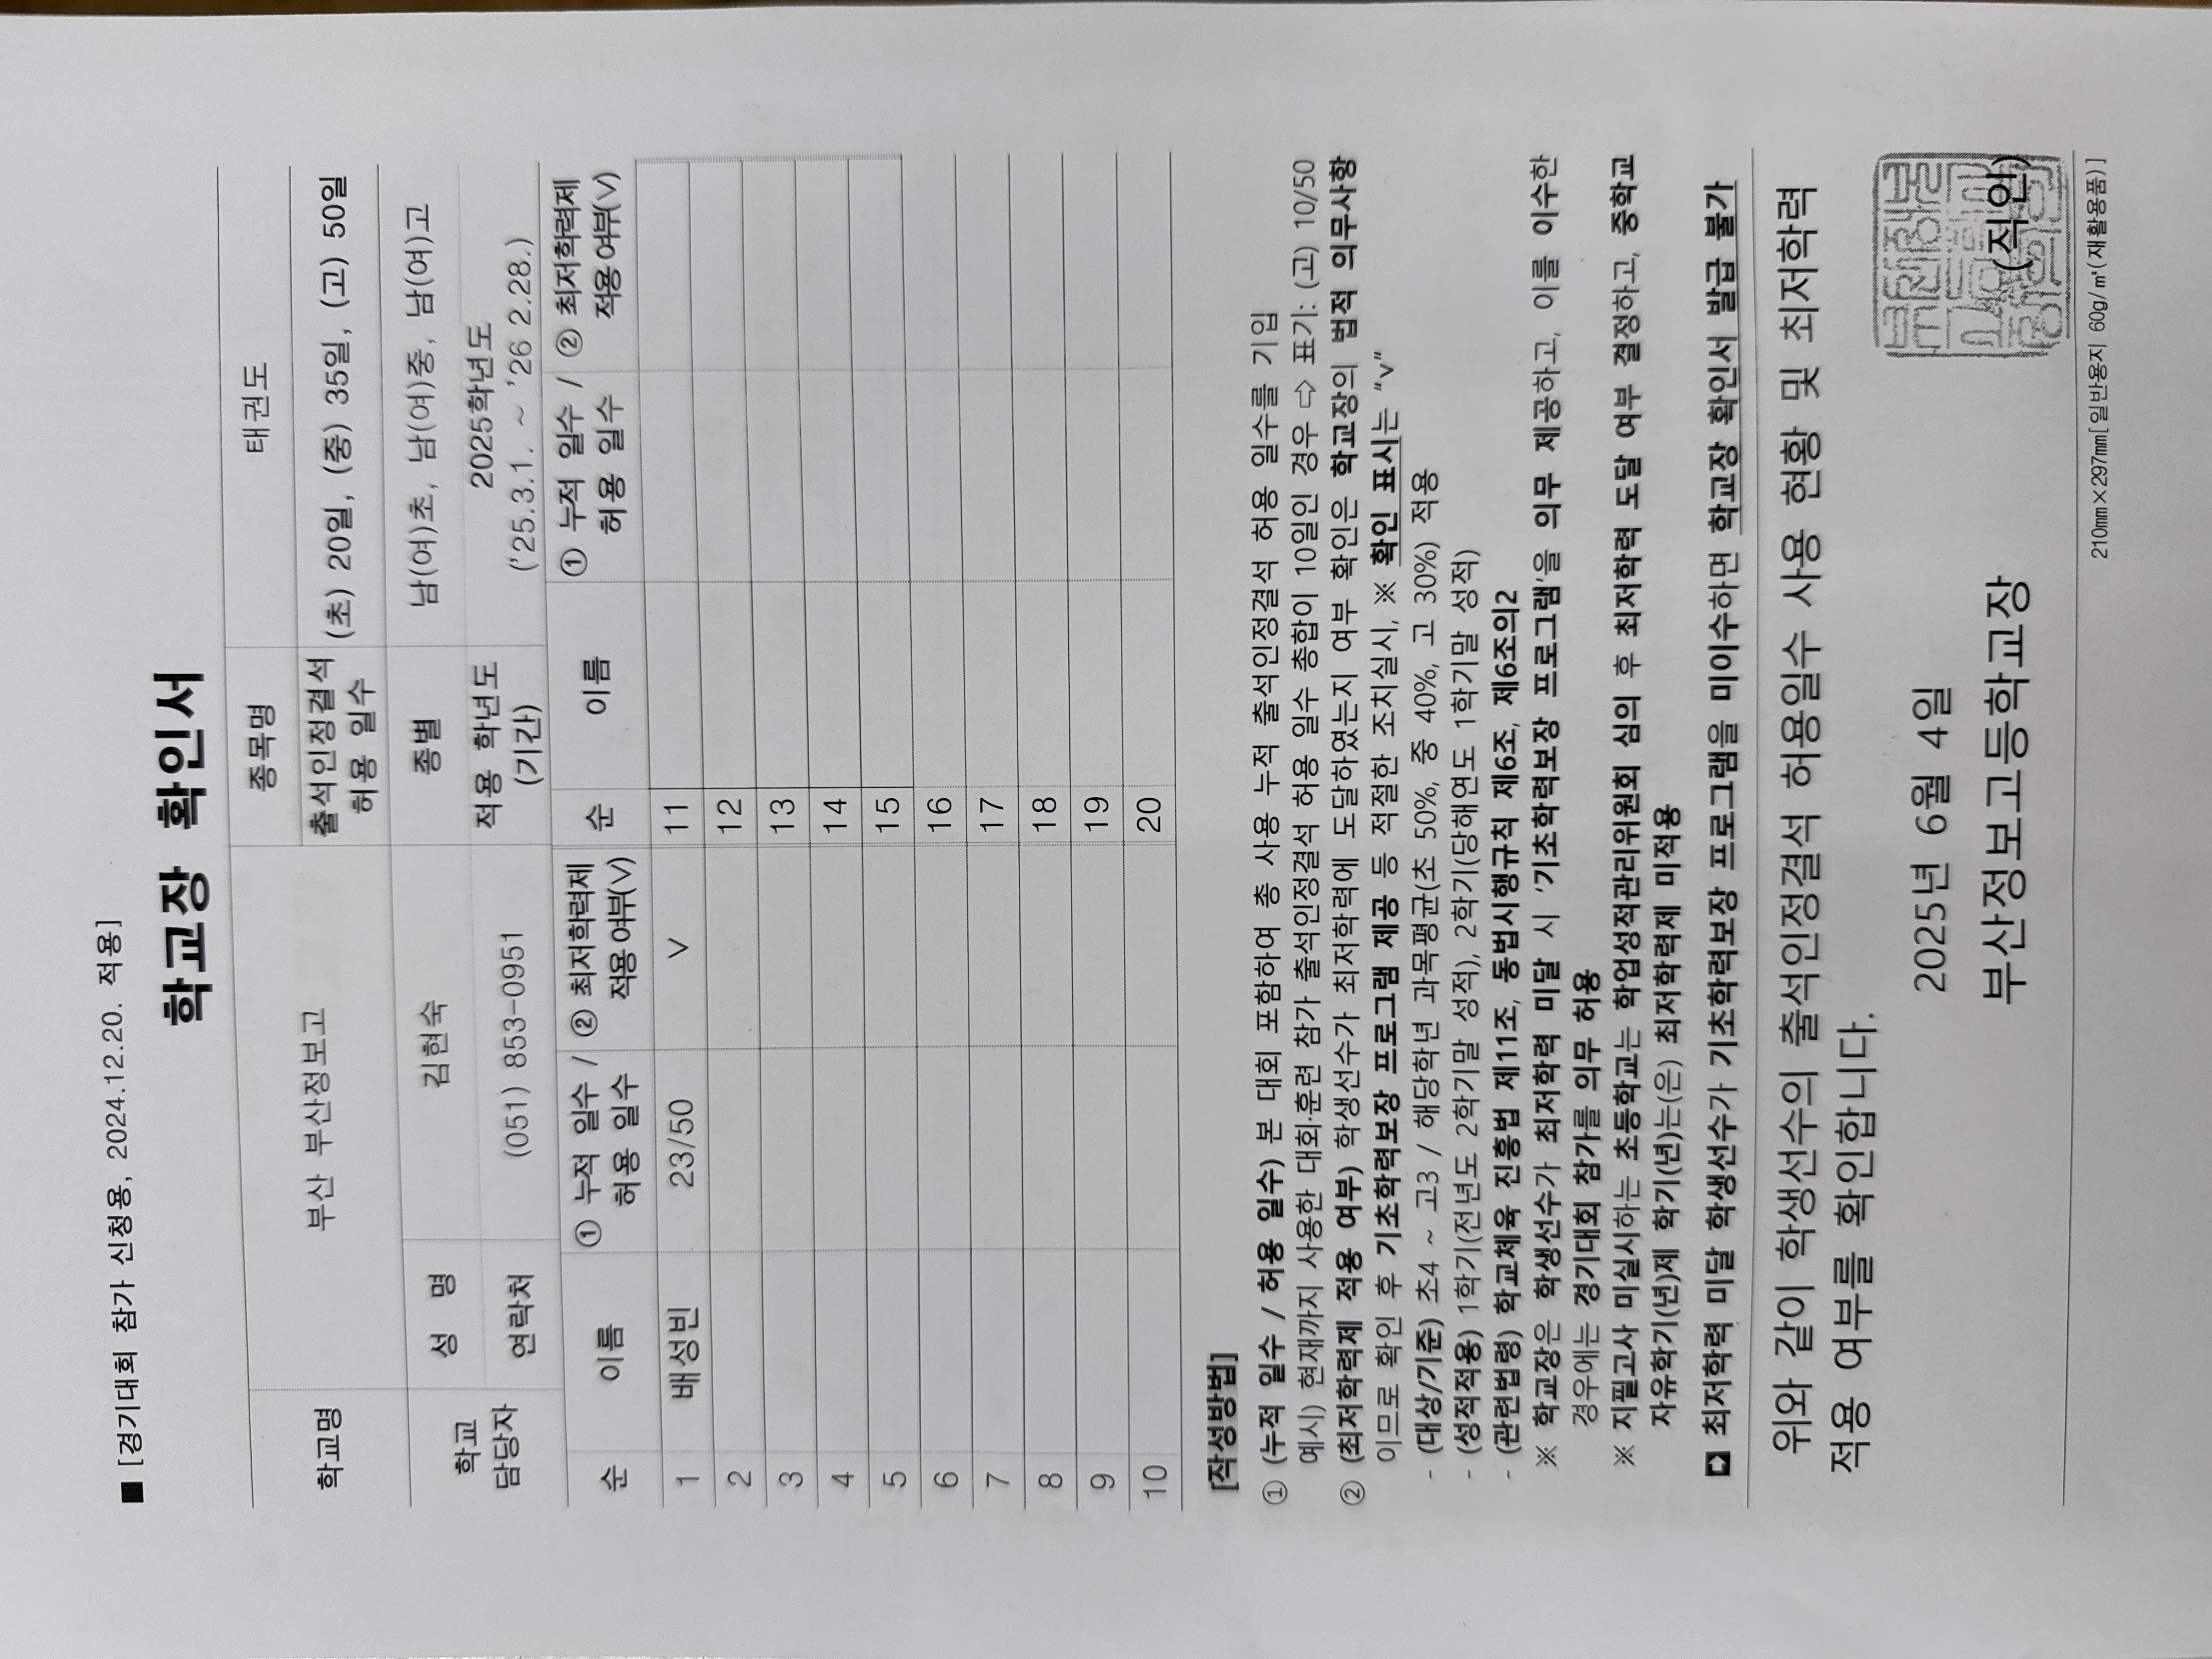 ■ [경기대회 참가 신청용, 2024.12.20. 적용]
학교장 확인서
학교명 부산 부산정보고 종목명 태권도
출석인정결석 허용 일수 (초) 20일, (중) 35일, (고) 50일
학교 담당자 성 명 김현숙 종별 남(여)초, 남(여)중, 남(여)고
연락처 (051) 853-0951 적용 학년도 (기간) 2025학년도 ('25.3.1. ~ '26 2.28.)
순 이름 ① 누적 일수 / 허용 일수 ② 최저학력제 적용여부(V) 순 이름 ① 누적 일수 / 허용 일수 ② 최저학력제 적용여부(V)
1 배성빈 23/50 V 11
2 12
3 13
4 14
5 15
6 16
7 17
8 18
9 19
10 20
[작성방법]
① (누적 일수 / 허용 일수) 본 대회 포함하여 총 사용 누적 출석인정결석 허용 일수를 기입
예시) 현재까지 사용한 대회·훈련 참가 출석인정결석 허용 일수 총합이 10일인 경우 ⇨ 표기: (고) 10/50
② (최저학력제 적용 여부) 학생선수가 최저학력에 도달하였는지 여부 확인은 학교장의 법적 의무사항
이므로 확인 후 기초학력보장 프로그램 제공 등 적절한 조치실시, ※ 확인 표시는 "v"
- (대상/기준) 초4 ~ 고3 / 해당학년 과목평균(초 50%, 중 40%, 고 30%) 적용
- (성적적용) 1학기(전년도 2학기말 성적), 2학기(당해연도 1학기말 성적)
- (관련법령) 학교체육 진흥법 제11조, 동법시행규칙 제6조, 제6조의2
※ 학교장은 학생선수가 최저학력 미달 시 '기초학력보장 프로그램'을 의무 제공하고, 이를 이수한
경우에는 경기대회 참가를 의무 허용
※ 지필고사 미실시하는 초등학교는 학업성적관리위원회 심의 후 최저학력 도달 여부 결정하고, 중학교
자유학기(년)제 학기(년)는(은) 최저학력제 미적용
최저학력 미달 학생선수가 기초학력보장 프로그램을 미이수하면 학교장 확인서 발급 불가
위와 같이 학생선수의 출석인정결석 허용일수 사용 현황 및 최저학력
적용 여부를 확인합니다.
2025년 6월 4일
부산정보고등학교장 (직인)
210㎜×297㎜[일반용지 60g/㎡(재활용품)]